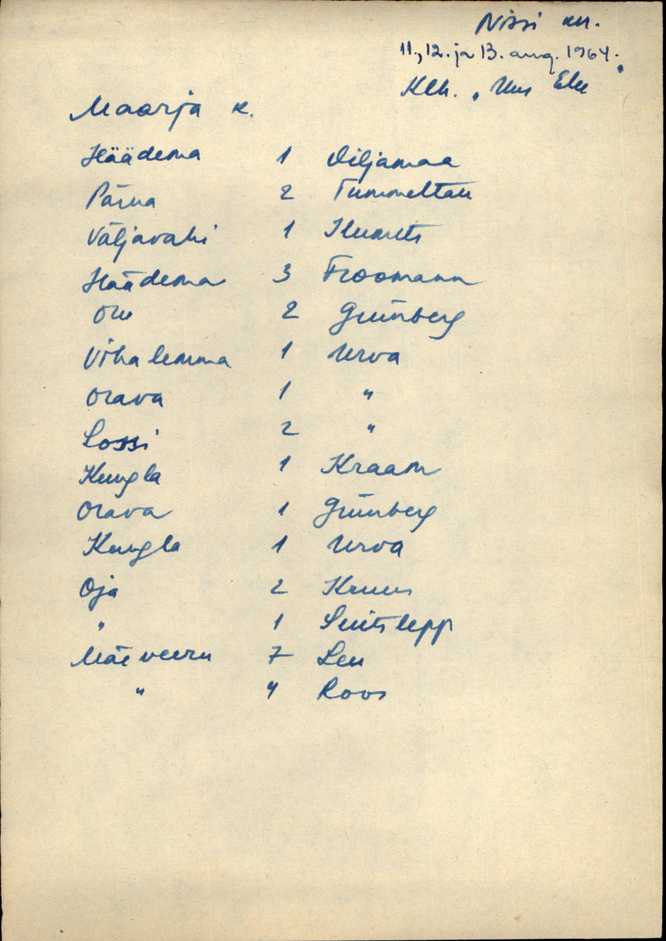 Nissi kn.
11., 12. ja 13. aug. 1964.
Klh. "Uus Elu"
Maarja k.
Häädema 1 Viljamaa
Pärna 2 Tummeltau
Väljavahi 1 Ilumets
Häädema 3 Froomann
Oru 2 Grünberg
Vihalemma 1 Urva
Orava 1 "
Lossi 2 "
Kungla 1 Kraam
Orava 1 Grünberg
Kungla 1 Urva
Oja 2 Kruus
" 1 Suitslepp
Mäeveeru 7 Leu
" 4 Roos